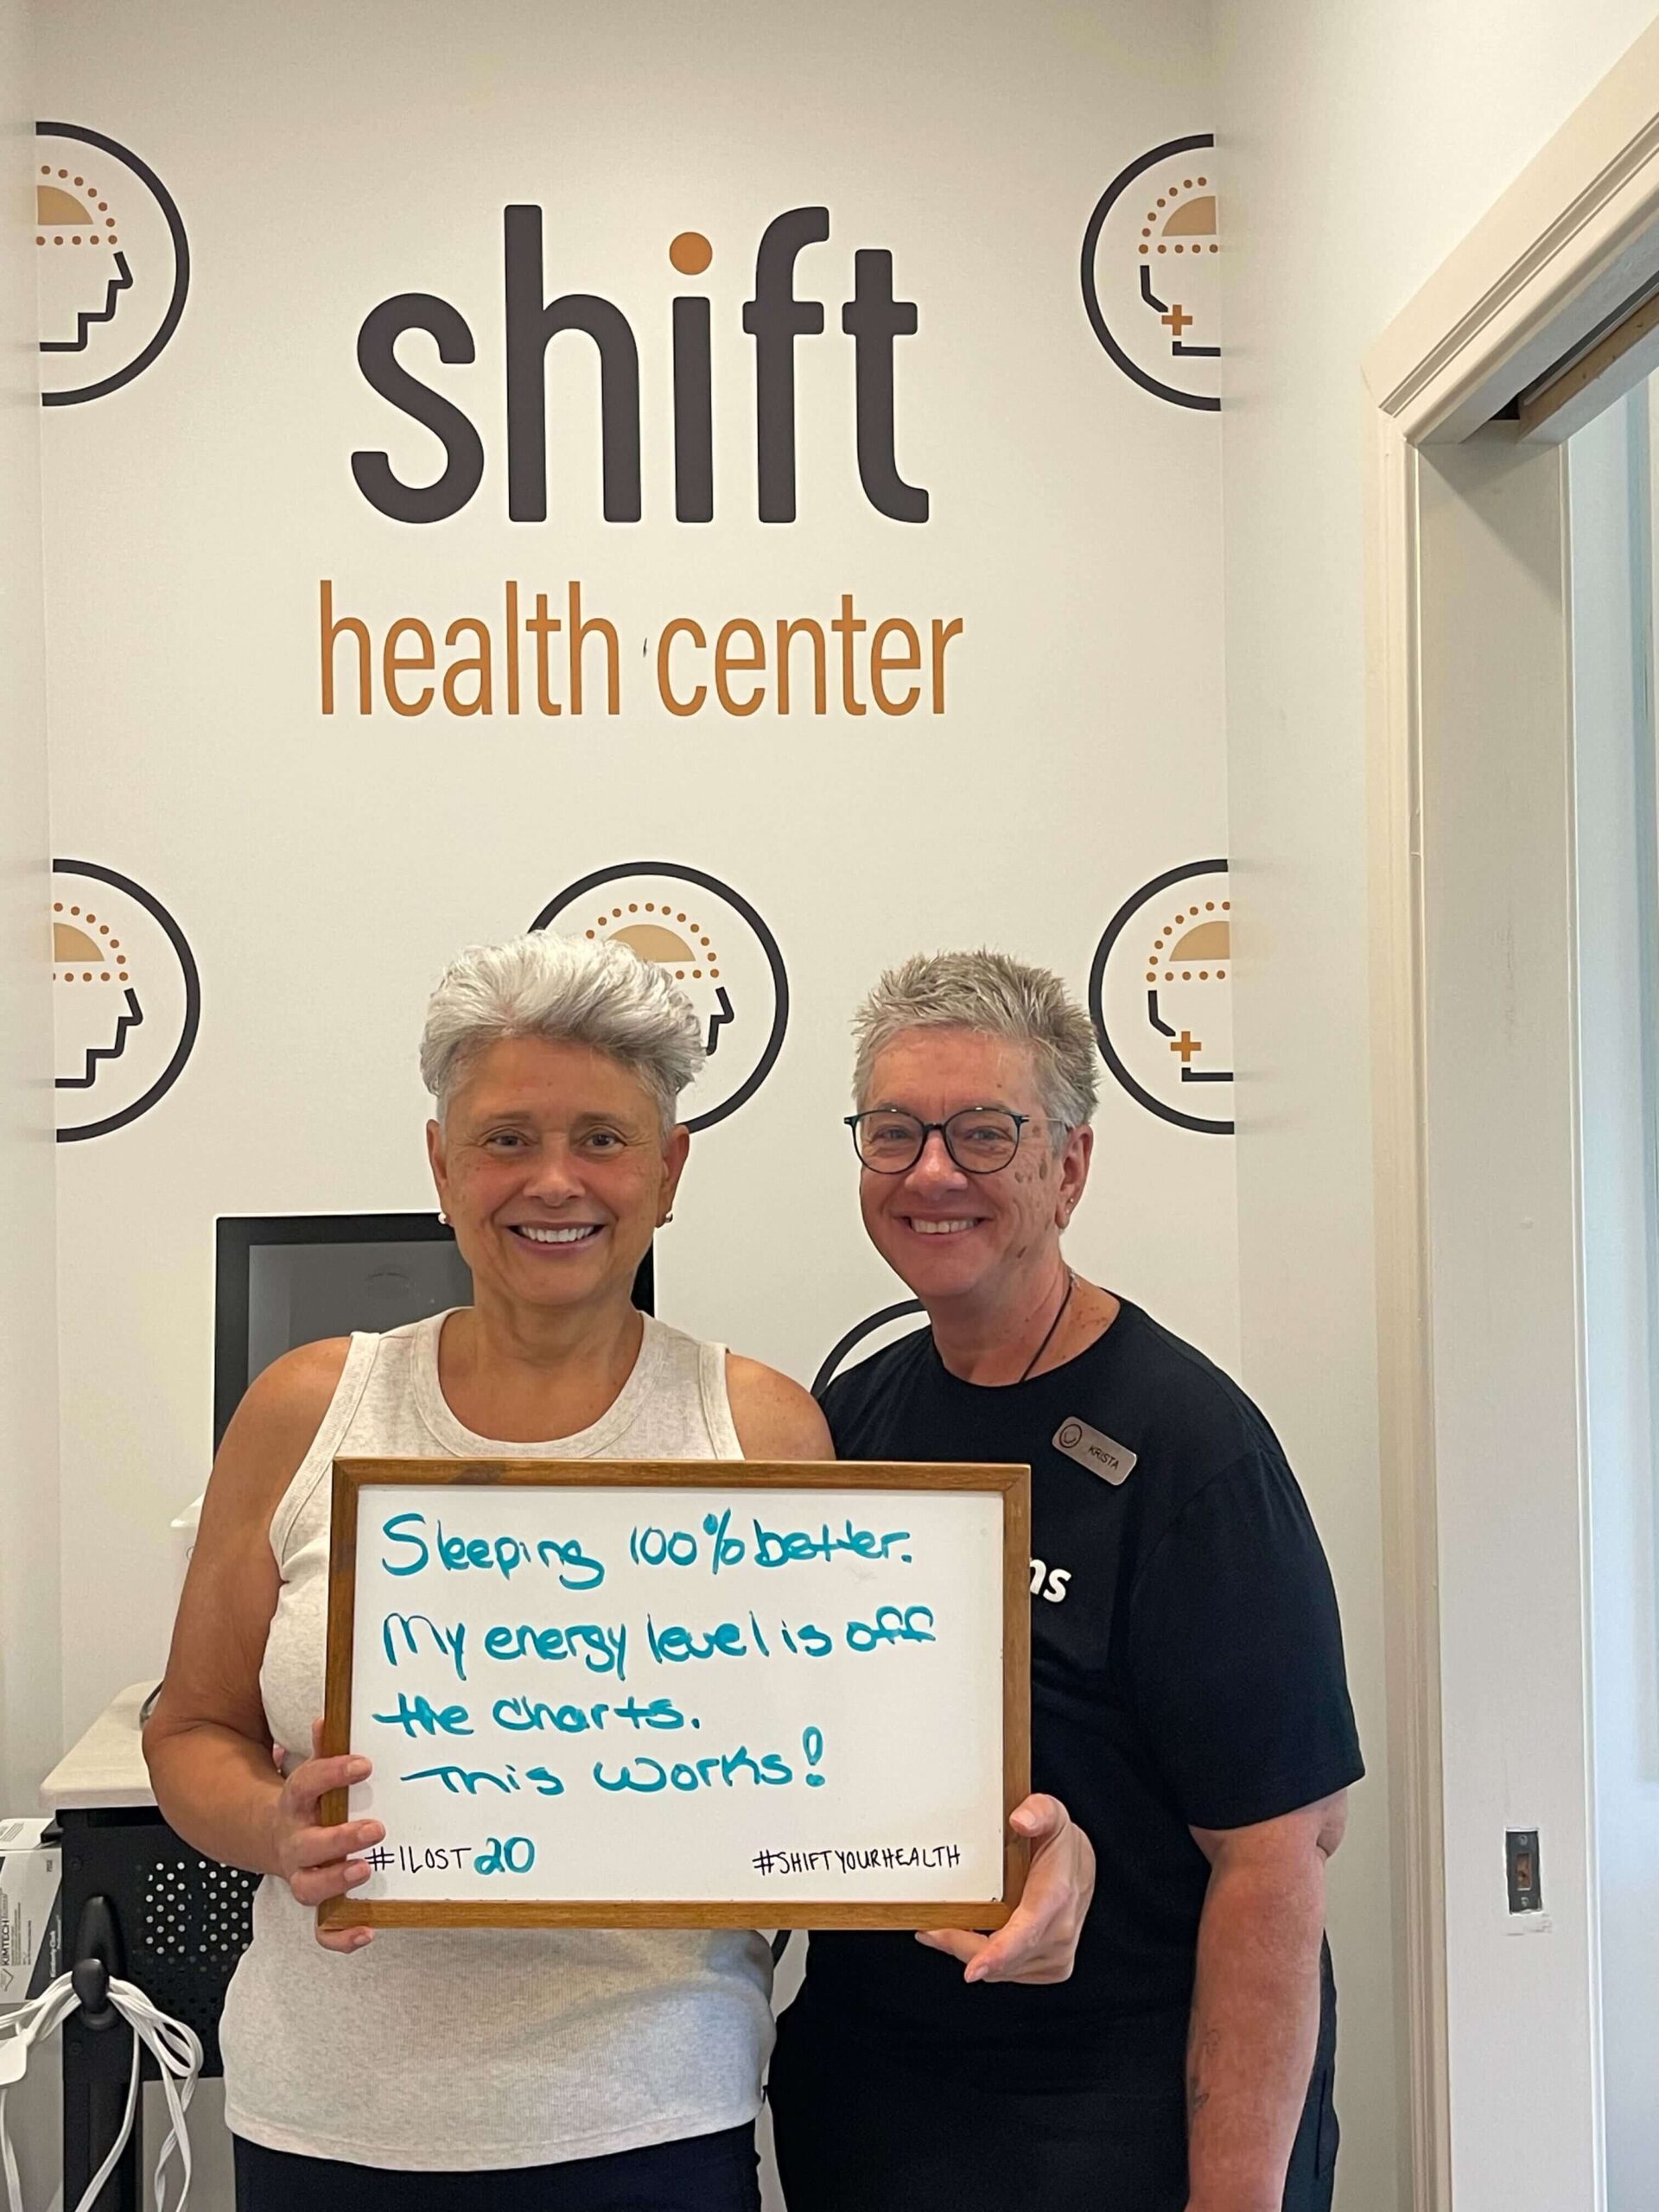 shift
health center
KRISTA
ns
Sleeping 100% better.
My energy level is off
the charts.
This works!
#ILOST 20
#SHIFTYOURHEALTH
KIMTECH